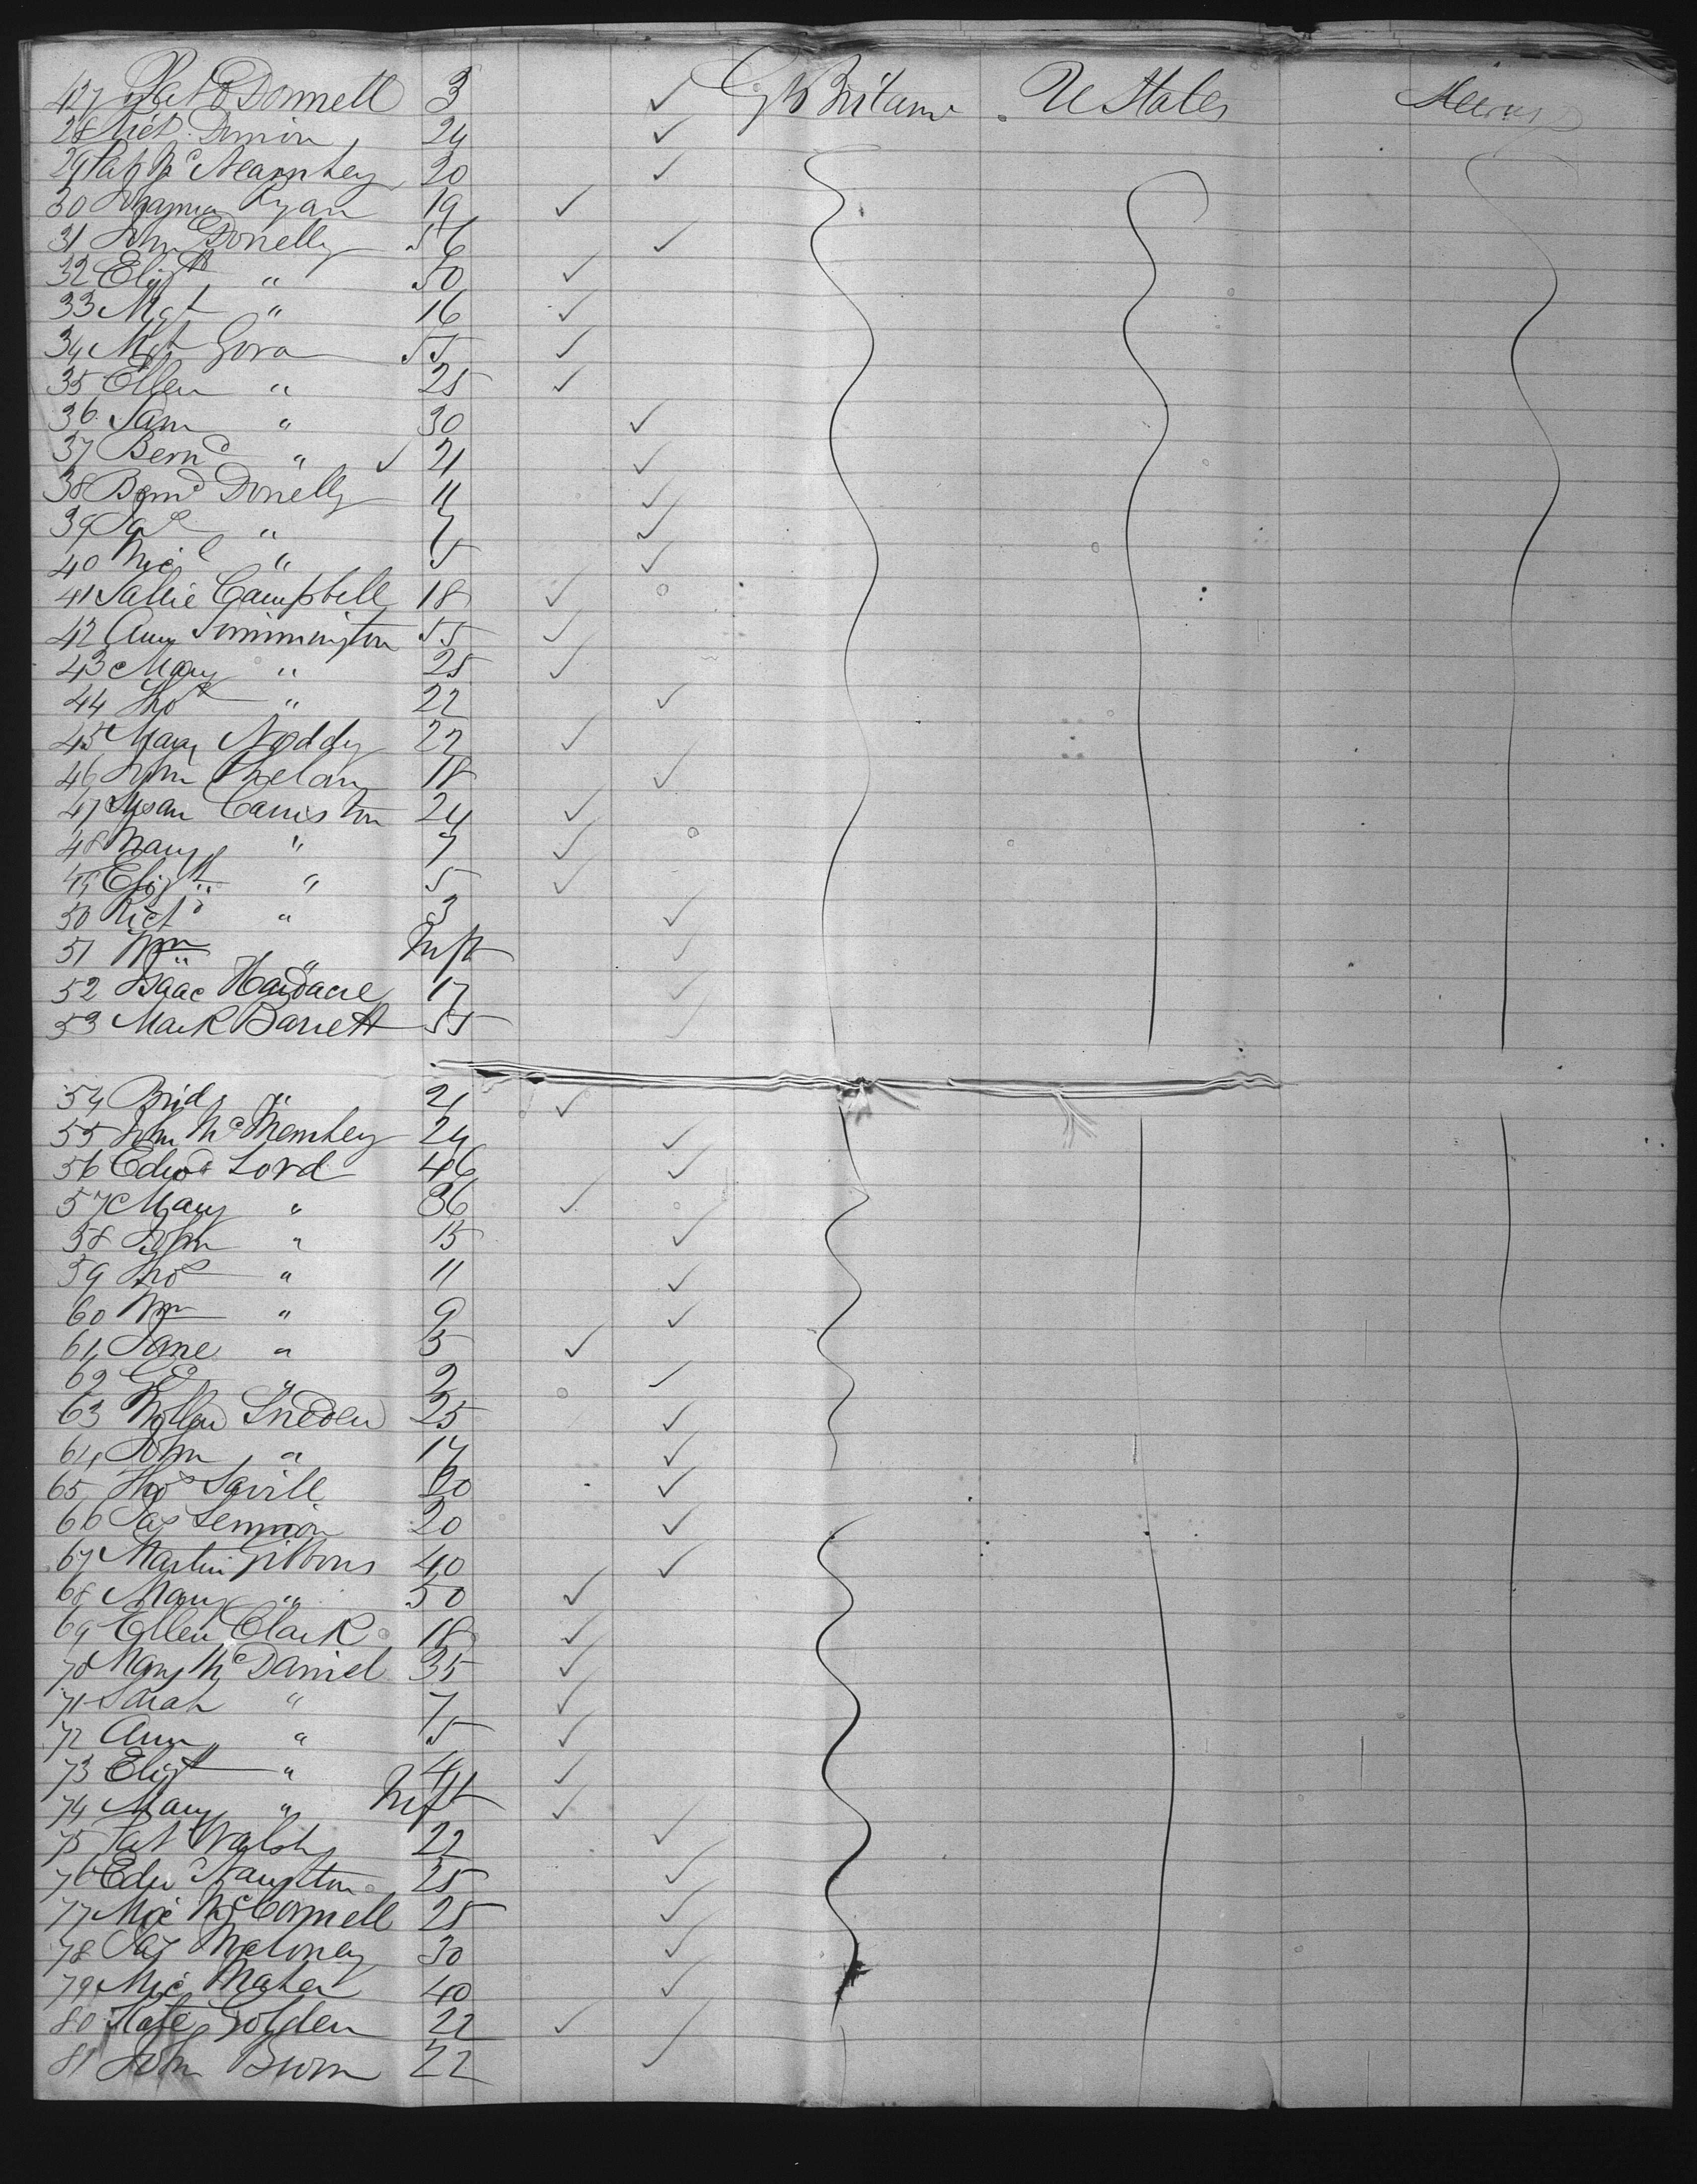 427 Pat O Donnell 3 ✓ Gt Britain U States Steerage
28 Rich 24 ✓
29 Pat Mc 20 ✓
30 Ryan 19 ✓
31 John Donelly 56 ✓
32 Elizth " 50 ✓
33 Mgt " 16 ✓
34 Mgt Gora 55 ✓
35 Ellen " 25 ✓
36 Sam " 30 ✓
37 Bernd " ✓ 21 ✓
38 Bernd Donelly 11 ✓
39 " 7 ✓
40 Micl " 5 ✓
41 Sallie Campbell 18 ✓
42 Ann Simmington 55 ✓
43 Mary " 25 ✓
44 Thos " 22 ✓
45 Mary Noddy 22 ✓
46 John Phelan 18 ✓
47 Susan Canniston 24 ✓
48 Mary " 7 ✓
49 Elizth " 5 ✓
50 Richd " 3 ✓
51 Wm " Inft ✓
52 Isaac Hardacre 17 ✓
53 Mark Barrett 55 ✓
54 Brid " 21 ✓
55 John Mc 24 ✓
56 Edwd Lord 46 ✓
57 Mary " 36 ✓
58 John " 15 ✓
59 Thos " 11 ✓
60 Wm " 9 ✓
61 Jane " 5 ✓
62 Geo " 2 ✓
63 Sneden 25 ✓
64 John " 17 ✓
65 Thos Savill 20 ✓
66 Jas Lennon 20 ✓
67 Martin Gibbons 40 ✓
68 Mary " 50 ✓
69 Ellen Clark 18 ✓
70 Mary Mc Daniel 35 ✓
71 Sarah " 7 ✓
72 Ann " 5 ✓
73 Elizth " 4 ✓
74 Mary " Inft ✓
75 Pat Walsh 22 ✓
76 Edw Naughton 25 ✓
77 Mic McConnell 25 ✓
78 Maloney 30 ✓
79 Mic Maher 40 ✓
80 Kate Golden 22 ✓
81 John Burn 22 ✓